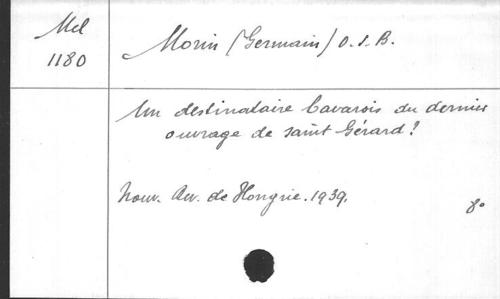 Mel
1180
Morin (Germain) O.S.B.
Un destinataire bavarois du dernier
ouvrage de saint Gérard?
Nouv. Rev. de Hongrie. 1939.
8°